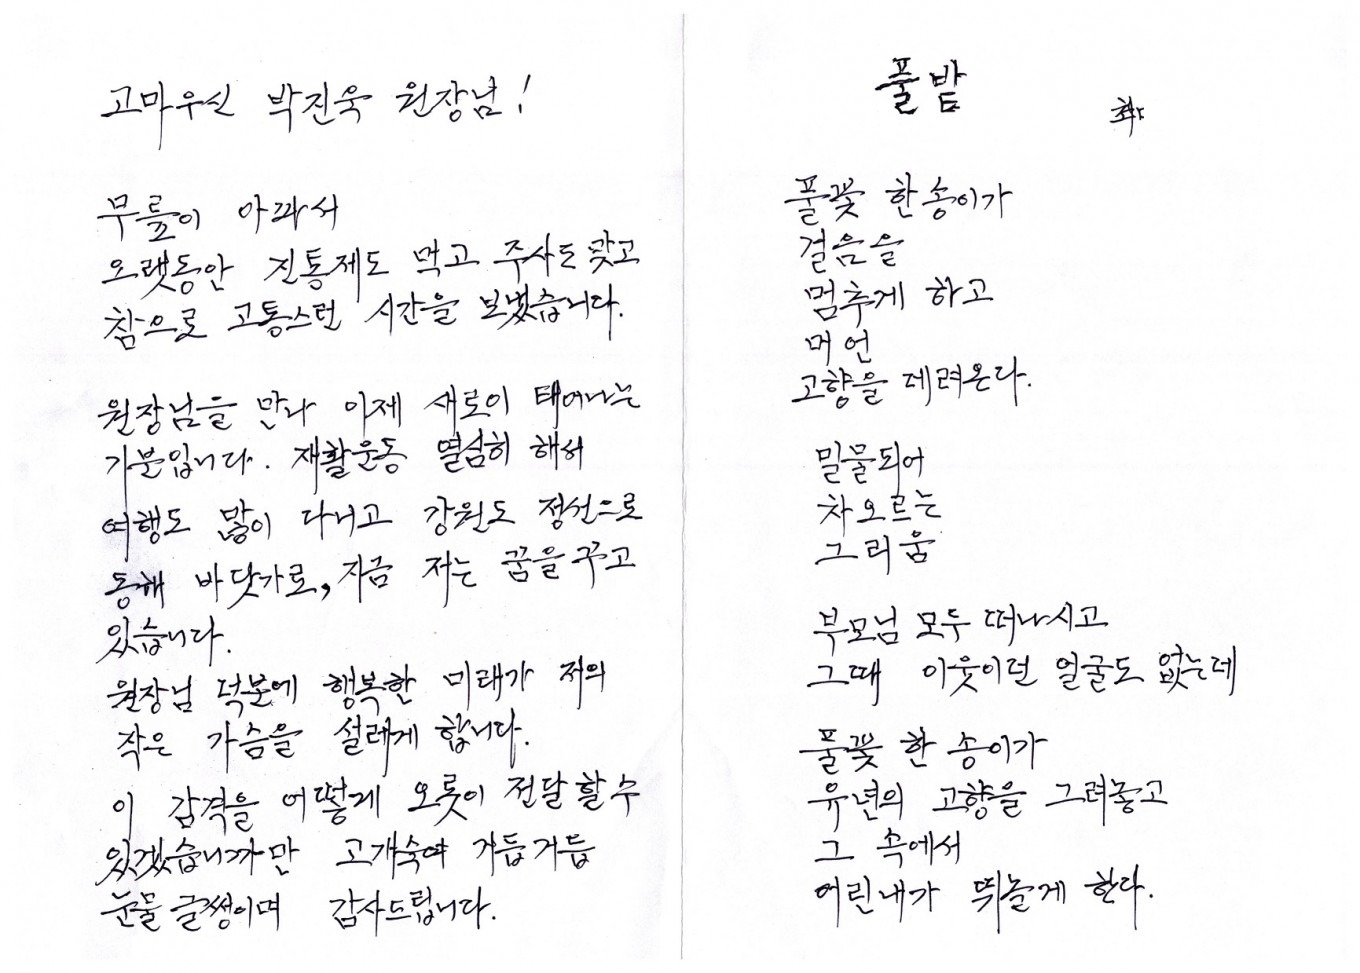 고마우신 박진욱 원장님!
무릎이 아파서
오랫동안 진통제도 먹고 주사도 맞고
참으로 고통스런 시간을 보냈습니다.
원장님을 만나 이제 새로이 태어나는
기분입니다. 재활운동 열심히 해서
여행도 많이 다니고 강원도 정선으로
동해 바닷가로, 지금 저는 꿈을 꾸고
있습니다.
원장님 덕분에 행복한 미래가 저의
작은 가슴을 설레게 합니다.
이 감격을 어떻게 오롯이 전달할 수
있겠습니까만 고개숙여 거듭거듭
눈물 글썽이며 감사드립니다.
풀밭
풀꽃 한 송이가
걸음을
멈추게 하고
머언
고향을 데려온다.
밀물되어
차오르는
그리움
부모님 모두 떠나시고
그때 이웃이던 얼굴도 없는데
풀꽃 한 송이가
유년의 고향을 그려놓고
그 속에서
어린내가 뛰놀게 한다.